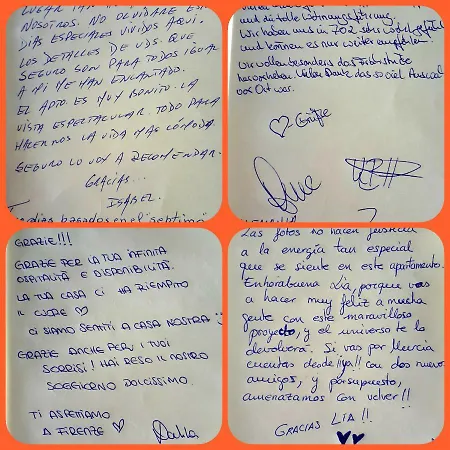 LUGAR
NOSOTROS. NO OLVIDARÉ ESTOS
DIAS ESPECIALES VIVIDOS AQUI.
LOS DETALLES DE UDS. QUE
SEGURO SON PARA TODOS IGUAL
A MI ME HAN ENCANTADO.
EL APTO. ES MUY BONITO. LA
VISTA ESPECTACULAR. TODO PARA
HACERNOS LA VIDA MAS CÓMODA.
SEGURO LO VOY A RECOMENDAR.
GRACIAS...
ISABEL.
basados en el
und die tolle Wohnungsführung.
Wir haben uns in 702 sehr wohl gefühlt
und können es nur weiter empfehlen.
Wir wollen besonders das Frühstück
hervorheben. Vielen Dank das so viel Auswahl
vor Ort war.
♡-Grüße
GRAZIE!!!
GRAZIE PER LA TUA INFINITA
OSPITALITÀ E DISPONIBILITÀ.
LA TUA CASA CI HA RIEMPITO
IL CUORE ♡
CI SIAMO SENTITI A CASA NOSTRA :)
GRAZIE ANCHE PER I TUOI
SORRISI! HAI RESO IL NOSTRO
SOGGIORNO DOLCISSIMO.
TI ASPETTIAMO
A FIRENZE ♡
Las fotos no hacen justicia
a la energía tan especial
que se siente en este apartamento.
Enhorabuena Lía, porque vas
a hacer muy feliz a mucha
gente con este maravilloso
proyecto, y el universo te lo
devolverá. Si vas por Murcia
cuentas desde ¡ya!! con dos nuevos
amigos, y por supuesto,
amenazamos con volver!!
GRACIAS LÍA!!
♥♥